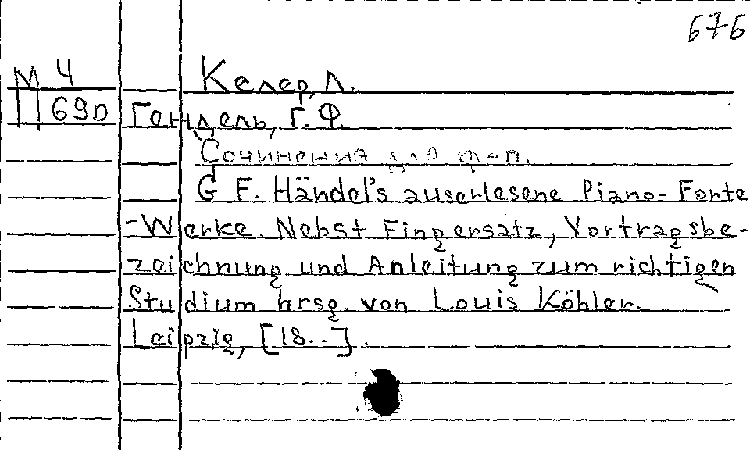 676
М 4 Келер, Л.
П 690 Гендель, Г. Ф.
Сочинения для ф-п.
G F. Händel's auserlesene Piano-Forte
-Werke. Nebst Fingersatz, Vortragsbe-
zeichnung und Anleitung zum richtigen
Studium hrsg. von Louis Köhler.
Leipzig, [18..].